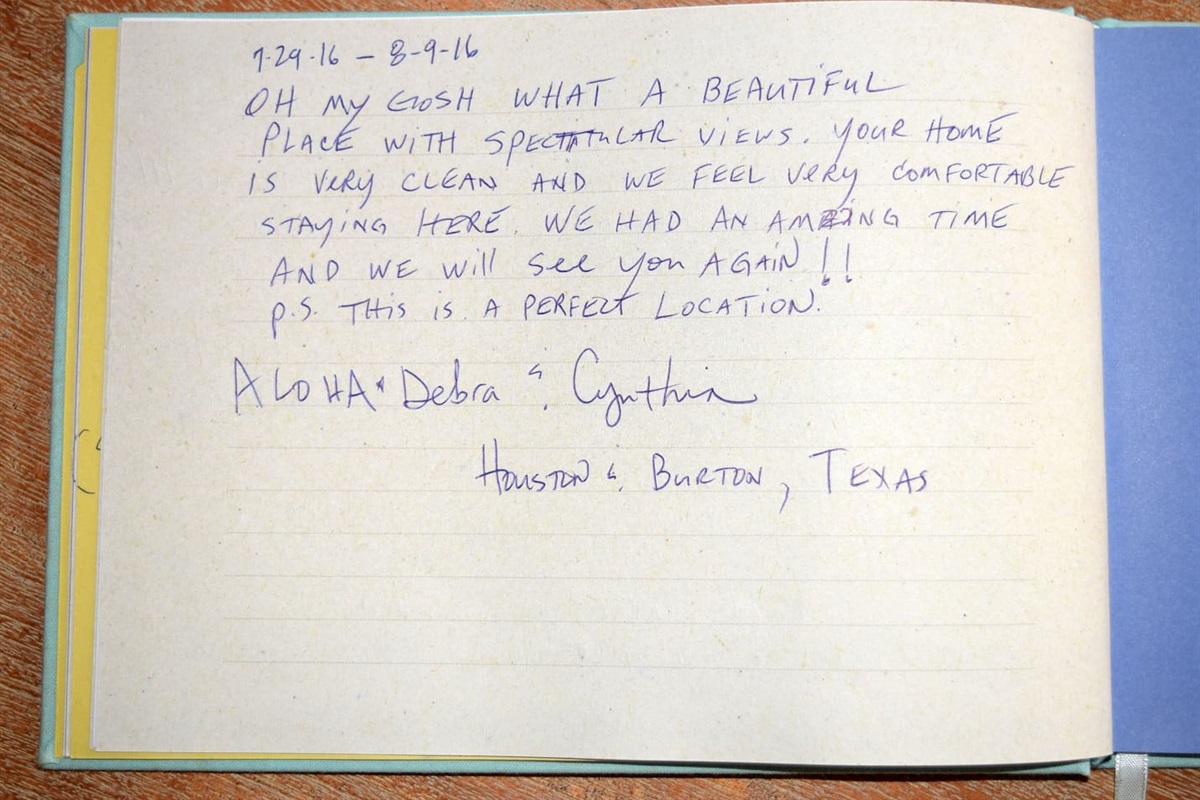 7-29-16 – 8-9-16
OH MY GOSH WHAT A BEAUTIFUL
PLACE WITH SPECTATULAR VIEWS. YOUR HOME
IS VERY CLEAN AND WE FEEL VERY COMFORTABLE
STAYING HERE. WE HAD AN AMAZING TIME
AND WE WILL SEE YOU AGAIN!!
P.S. THIS IS A PERFECT LOCATION.
ALOHA · Debra & Cynthia
HOUSTON & BURTON, TEXAS